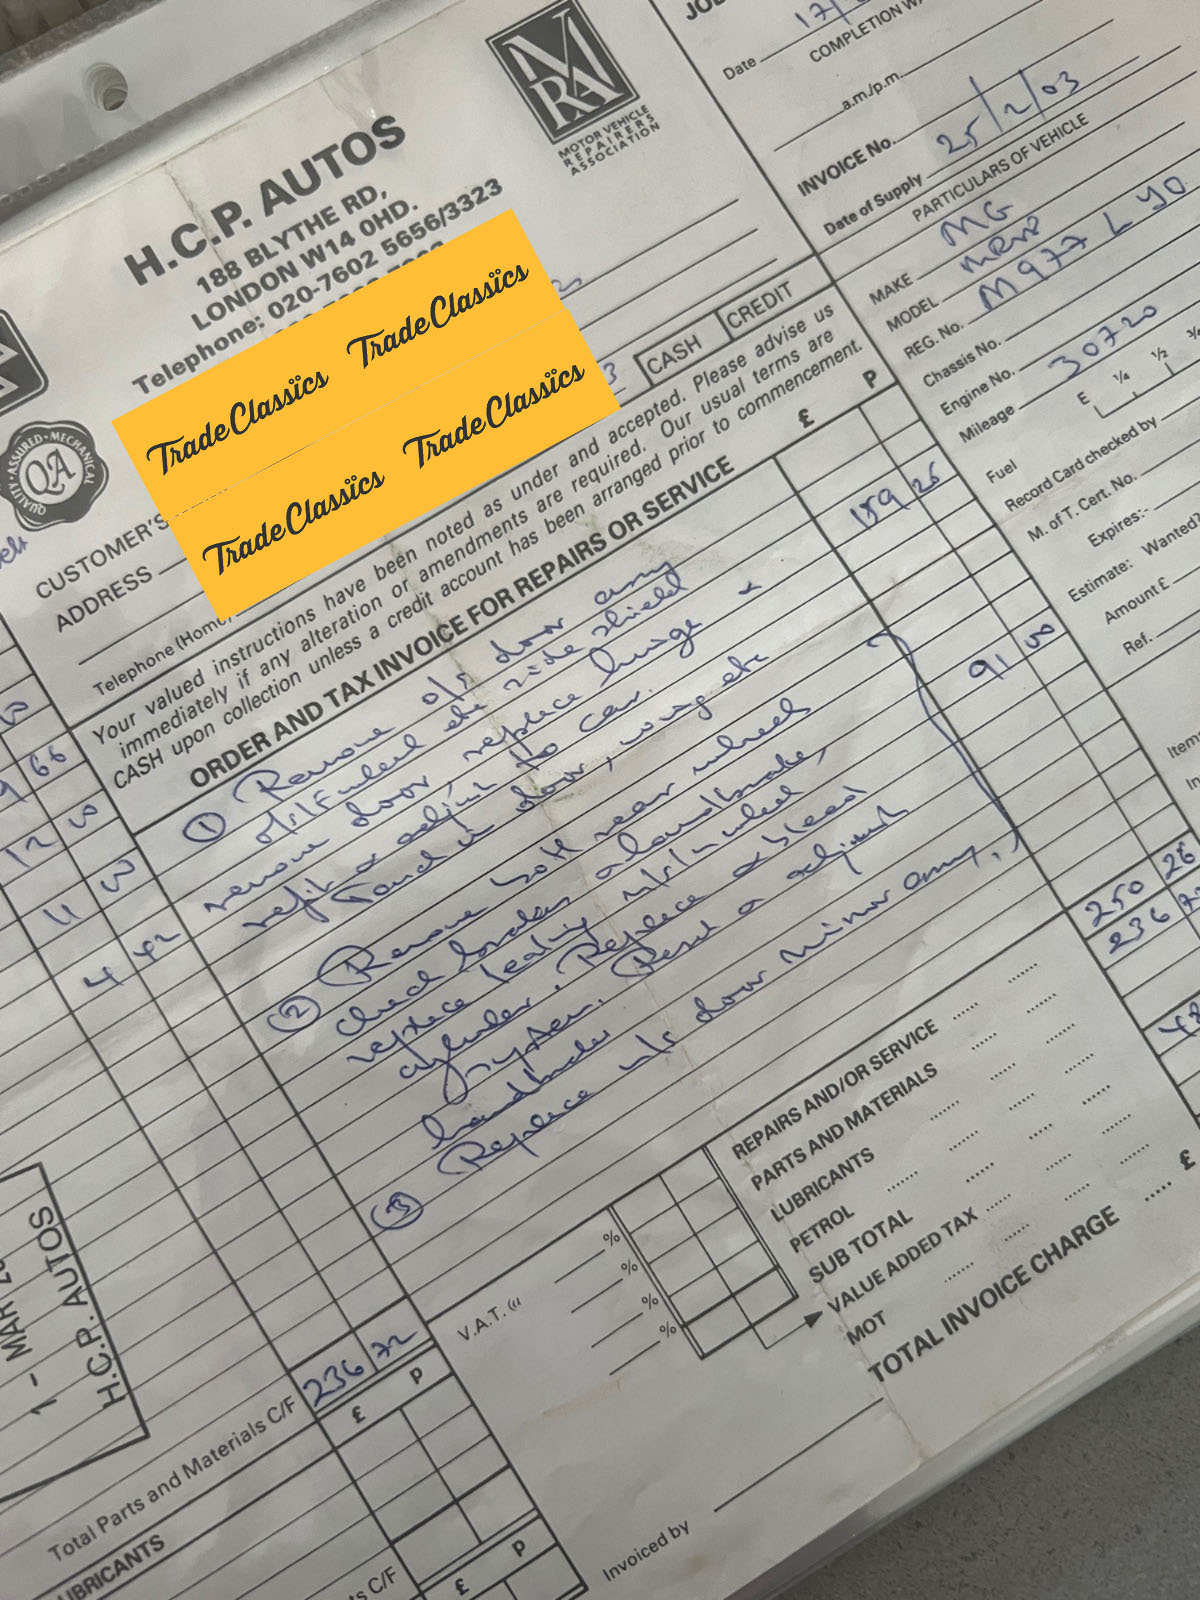 H.C.P. AUTOS
188 BLYTHE RD,
LONDON W14 0HD.
Telephone: 020-7602 5656/3323
MOTOR VEHICLE
REPAIRERS
ASSOCIATION
QUALITY • ASSURED • MECHANICAL
QA
TradeClassics TradeClassics
TradeClassics TradeClassics
CUSTOMER'S
ADDRESS
Telephone (Home)
CASH CREDIT
Your valued instructions have been noted as under and accepted. Please advise us
immediately if any alteration or amendments are required. Our usual terms are
CASH upon collection unless a credit account has been arranged prior to commencement.
ORDER AND TAX INVOICE FOR REPAIRS OR SERVICE
£ P
① Remove o/s door assy
side shield
remove door, replace hinge &
refit & adjust to car.
Touch in door, wing etc
159 26
② Remove both rear wheels
check brakes & handbrake,
replace leaking n/s/r wheel
cylinder. Replace & bleed
system. Reset & adjust
handbrake
91 00
③ Replace n/s door mirror assy.
Date 17/
COMPLETION
a.m./p.m.
INVOICE No.
Date of Supply 25/2/03
PARTICULARS OF VEHICLE
MAKE MG
MODEL MRV8
REG. No. M977 LYO
Chassis No.
Engine No.
Mileage 30720
Fuel E 1/4 1/2 3/4
Record Card checked by
M. of T. Cert. No.
Expires:-
Estimate: Wanted?
Amount £
Ref.
REPAIRS AND/OR SERVICE 250 26
PARTS AND MATERIALS 236 72
LUBRICANTS
PETROL
SUB TOTAL
VALUE ADDED TAX
MOT
TOTAL INVOICE CHARGE £
V.A.T.
%
%
%
%
Invoiced by
9 66
12 00
11 00
4 42
1 - MAR
H.C.P. AUTOS
Total Parts and Materials C/F 236 72
£ P
£ P